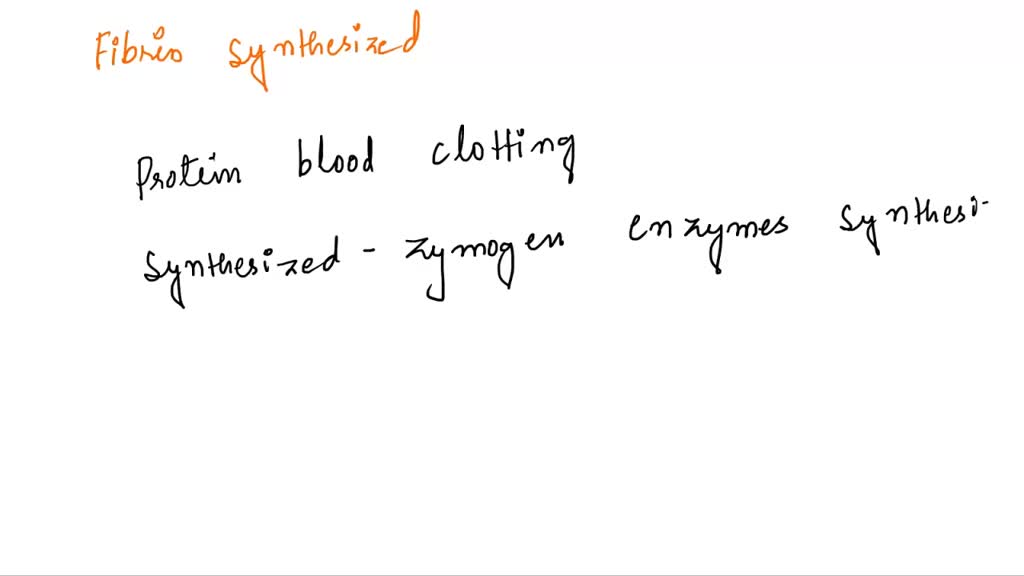 Fibrin synthesized
Protein blood clotting
synthesized - zymogen enzymes synthesi-